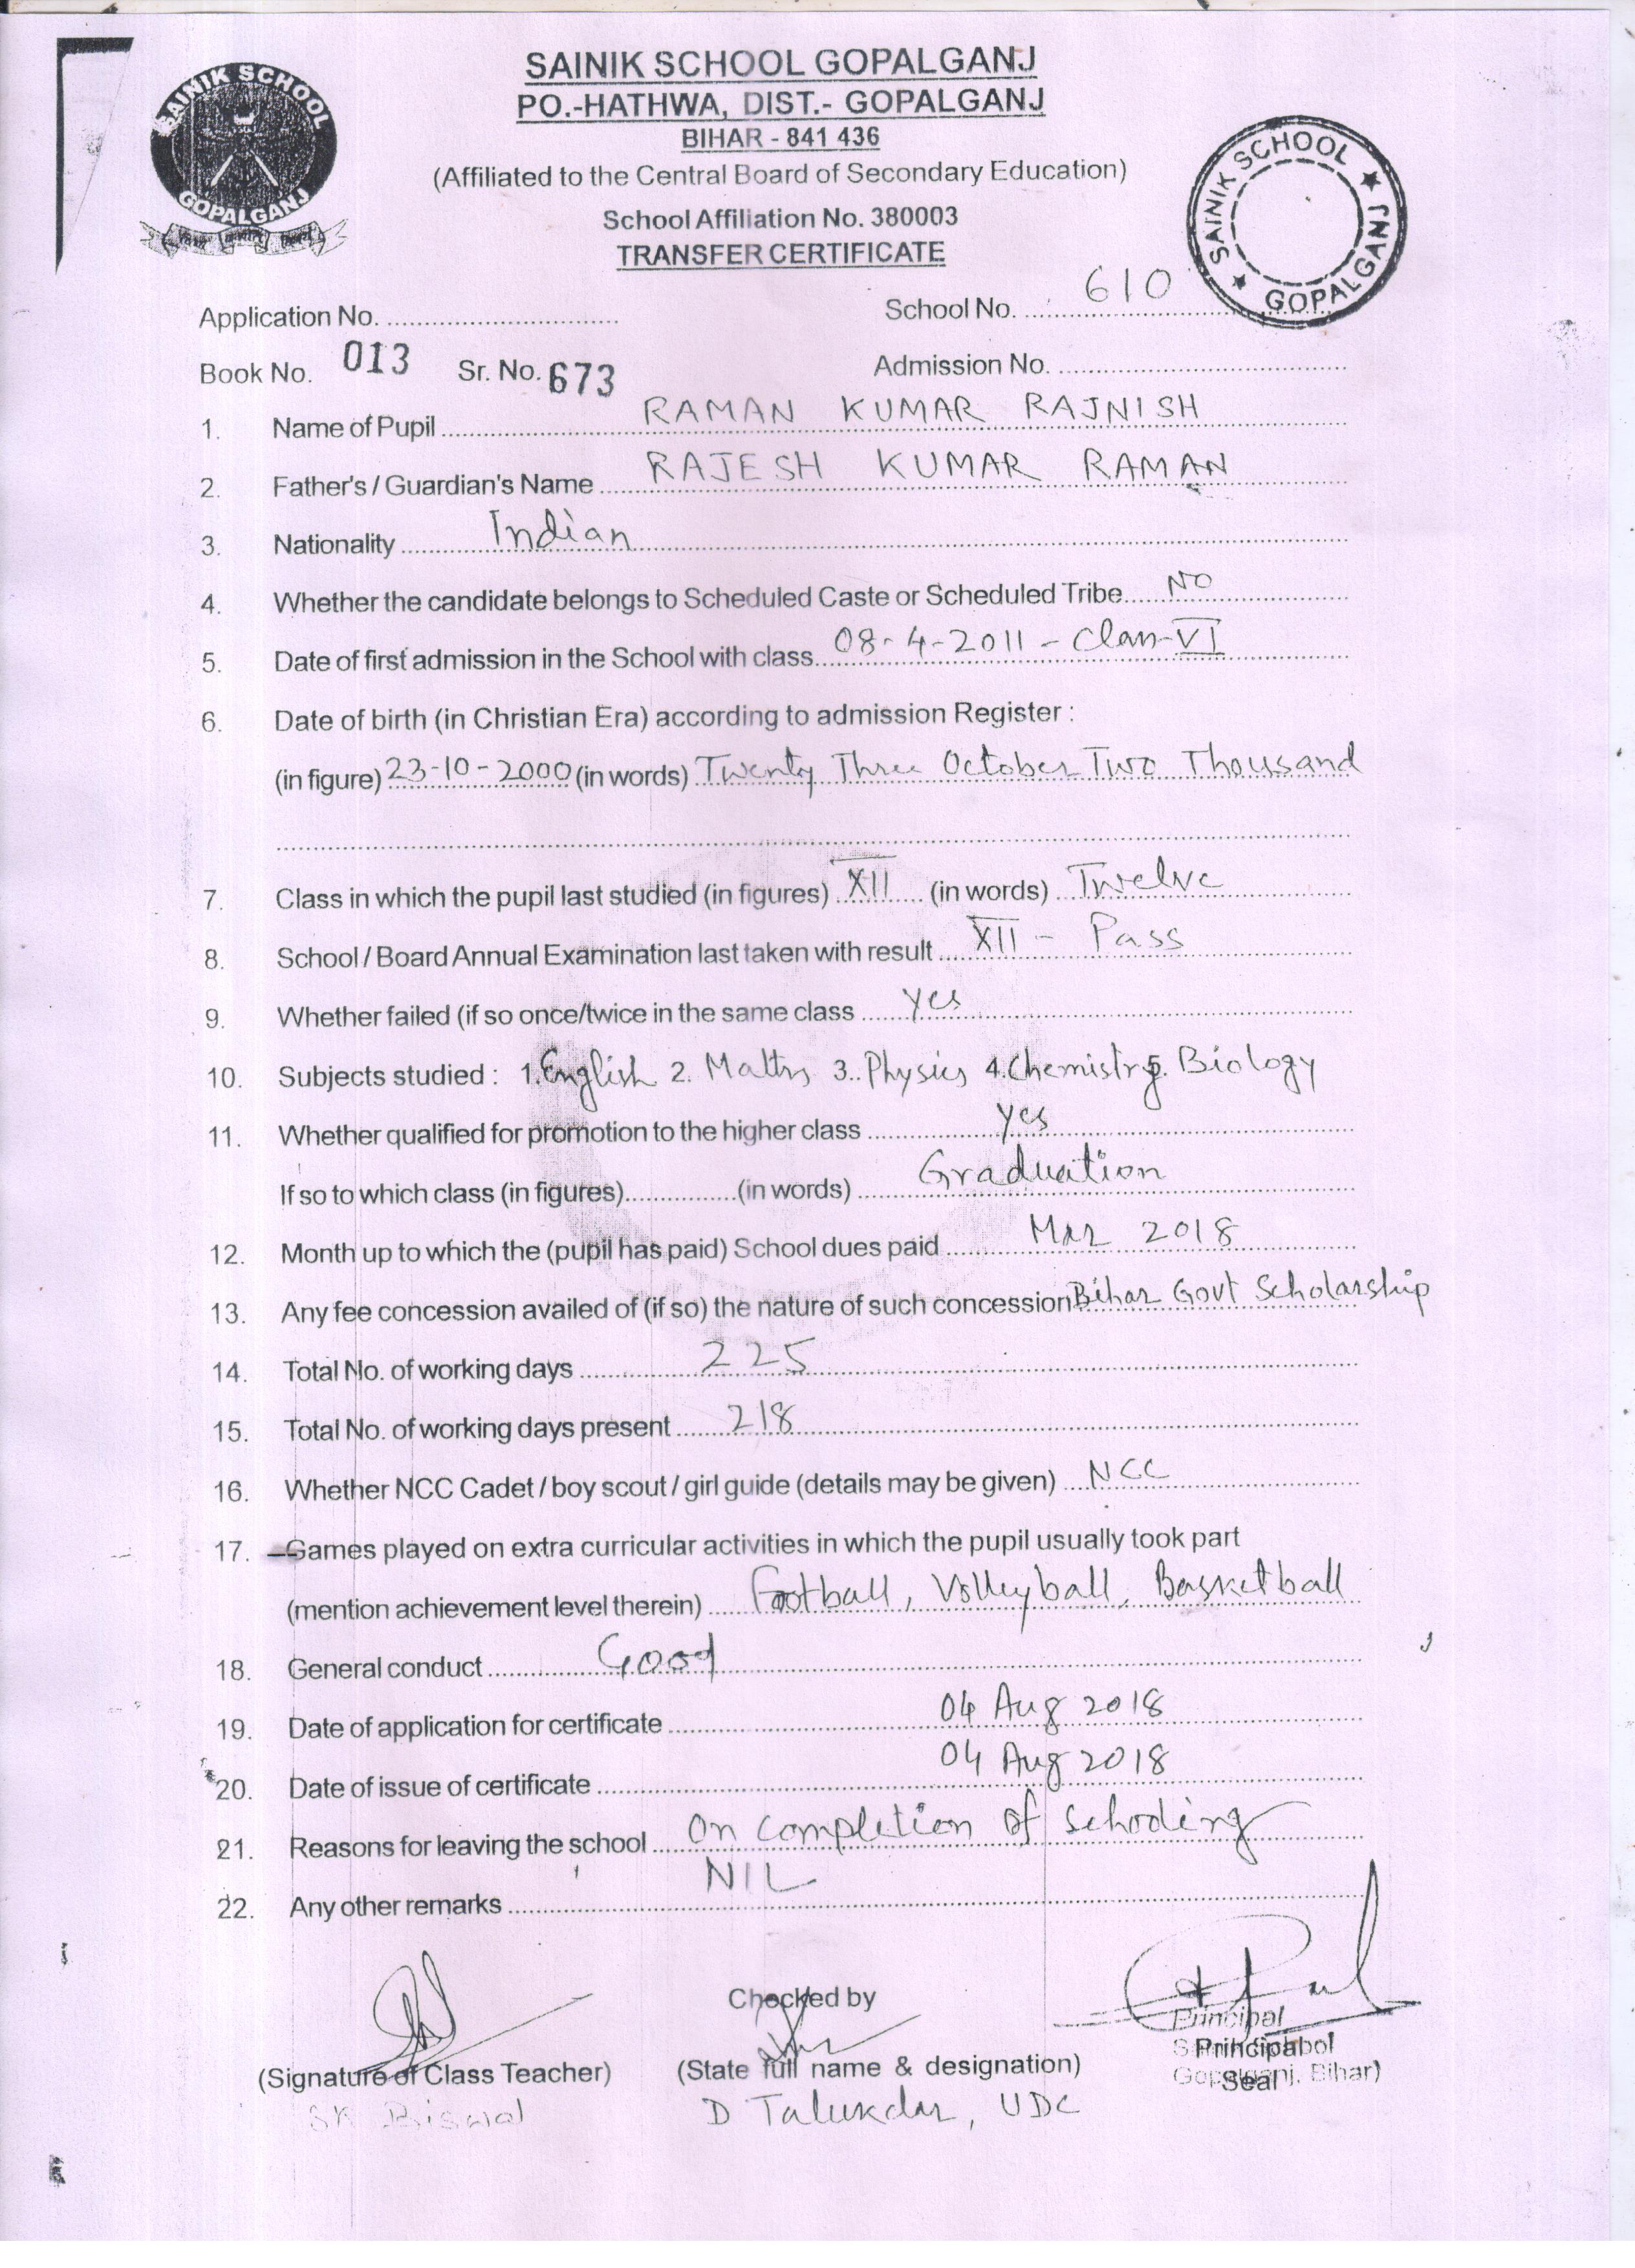 SAINIK SCHOOL GOPALGANJ
PO.-HATHWA, DIST.- GOPALGANJ
BIHAR - 841 436
(Affiliated to the Central Board of Secondary Education)
School Affiliation No. 380003
TRANSFER CERTIFICATE
SAINIK SCHOOL
GOPALGANJ
SAINIK SCHOOL ★ GOPALGANJ ★
Application No. ........ School No. 610
Book No. 013 Sr. No. 673 Admission No. ........
1. Name of Pupil RAMAN KUMAR RAJNISH
2. Father's / Guardian's Name RAJESH KUMAR RAMAN
3. Nationality Indian
4. Whether the candidate belongs to Scheduled Caste or Scheduled Tribe NO
5. Date of first admission in the School with class 08-4-2011 - Class-VI
6. Date of birth (in Christian Era) according to admission Register :
(in figure) 23-10-2000 (in words) Twenty Three October Two Thousand
7. Class in which the pupil last studied (in figures) XII (in words) Twelve
8. School / Board Annual Examination last taken with result XII - Pass
9. Whether failed (if so once/twice in the same class Yes
10. Subjects studied : 1. English 2. Maths 3. Physics 4. Chemistry 5. Biology
11. Whether qualified for promotion to the higher class Yes
If so to which class (in figures) ........ (in words) Graduation
12. Month up to which the (pupil has paid) School dues paid Mar 2018
13. Any fee concession availed of (if so) the nature of such concession Bihar Govt Scholarship
14. Total No. of working days 225
15. Total No. of working days present 218
16. Whether NCC Cadet / boy scout / girl guide (details may be given) NCC
17. Games played on extra curricular activities in which the pupil usually took part
(mention achievement level therein) Football, Volleyball, Basketball
18. General conduct Good
19. Date of application for certificate 04 Aug 2018
20. Date of issue of certificate 04 Aug 2018
21. Reasons for leaving the school On completion of schooling
22. Any other remarks NIL
Checked by
Principal
(Signature of Class Teacher) (State full name & designation) Principal
Gopalganj, Bihar) Seal
SK Biswal D Talukdar, UDC